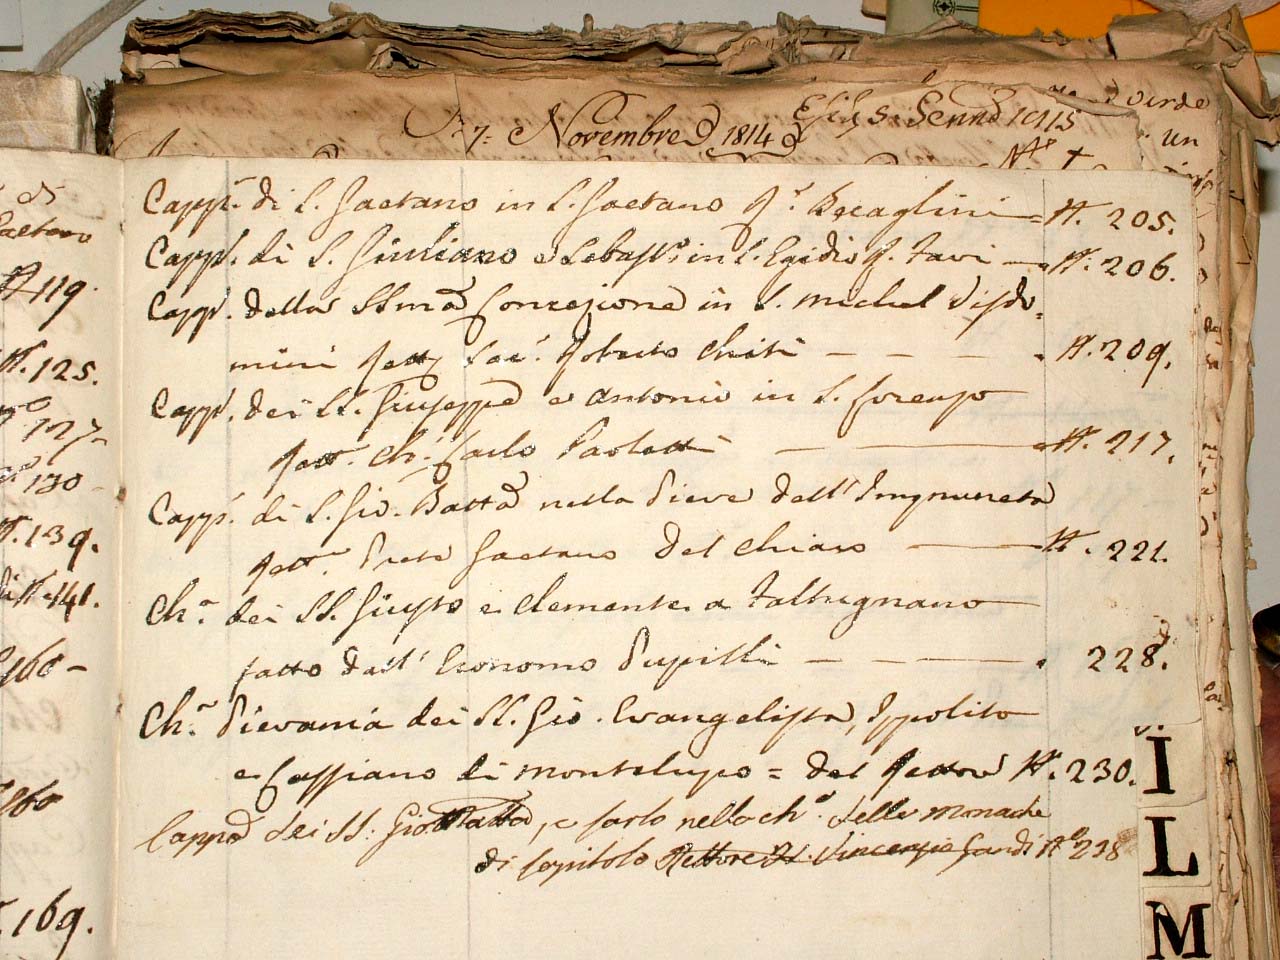 7: Novembre 1814
un
di
Gaetano
# 119.
#. 125.
127-
130-
#. 139.
di #. 141.
160-
160
169.
Capp.ª di S. Gaetano in S. Gaetano R.e Becaglini #. 205.
Capp.ª di S. Giuliano e Sebast.º in S. Egidio R. Tavi #. 206.
Capp.ª della SSma Concezione in S. Michel Visdo=
mini Rett. Sac. Roberto Chiti - - - - #. 209.
Capp.ª dei SS. Giuseppe e Antonio in S. Lorenzo
Rett. Ch. Carlo Paoletti #. 217.
Capp.ª di S. Gio. Batta nella Pieve dell' Impruneta
Rett. Prete Gaetano Del Chiaro #. 221.
Ch.ª dei SS. Giusto e Clemente a Faltugnano
fatto dall' Economo Pupilli - - 228.
Ch.ª Pievania dei SS. Gio. Evangelista, Ippolito
e Cassiano di Montelupo = del Rettore #. 230.
Cappa dei SS: Gio Batta, e Carlo nella ch.ª delle Monache
di Capitolo Rettore Vincenzio Gandi Nº 238
I
L
M